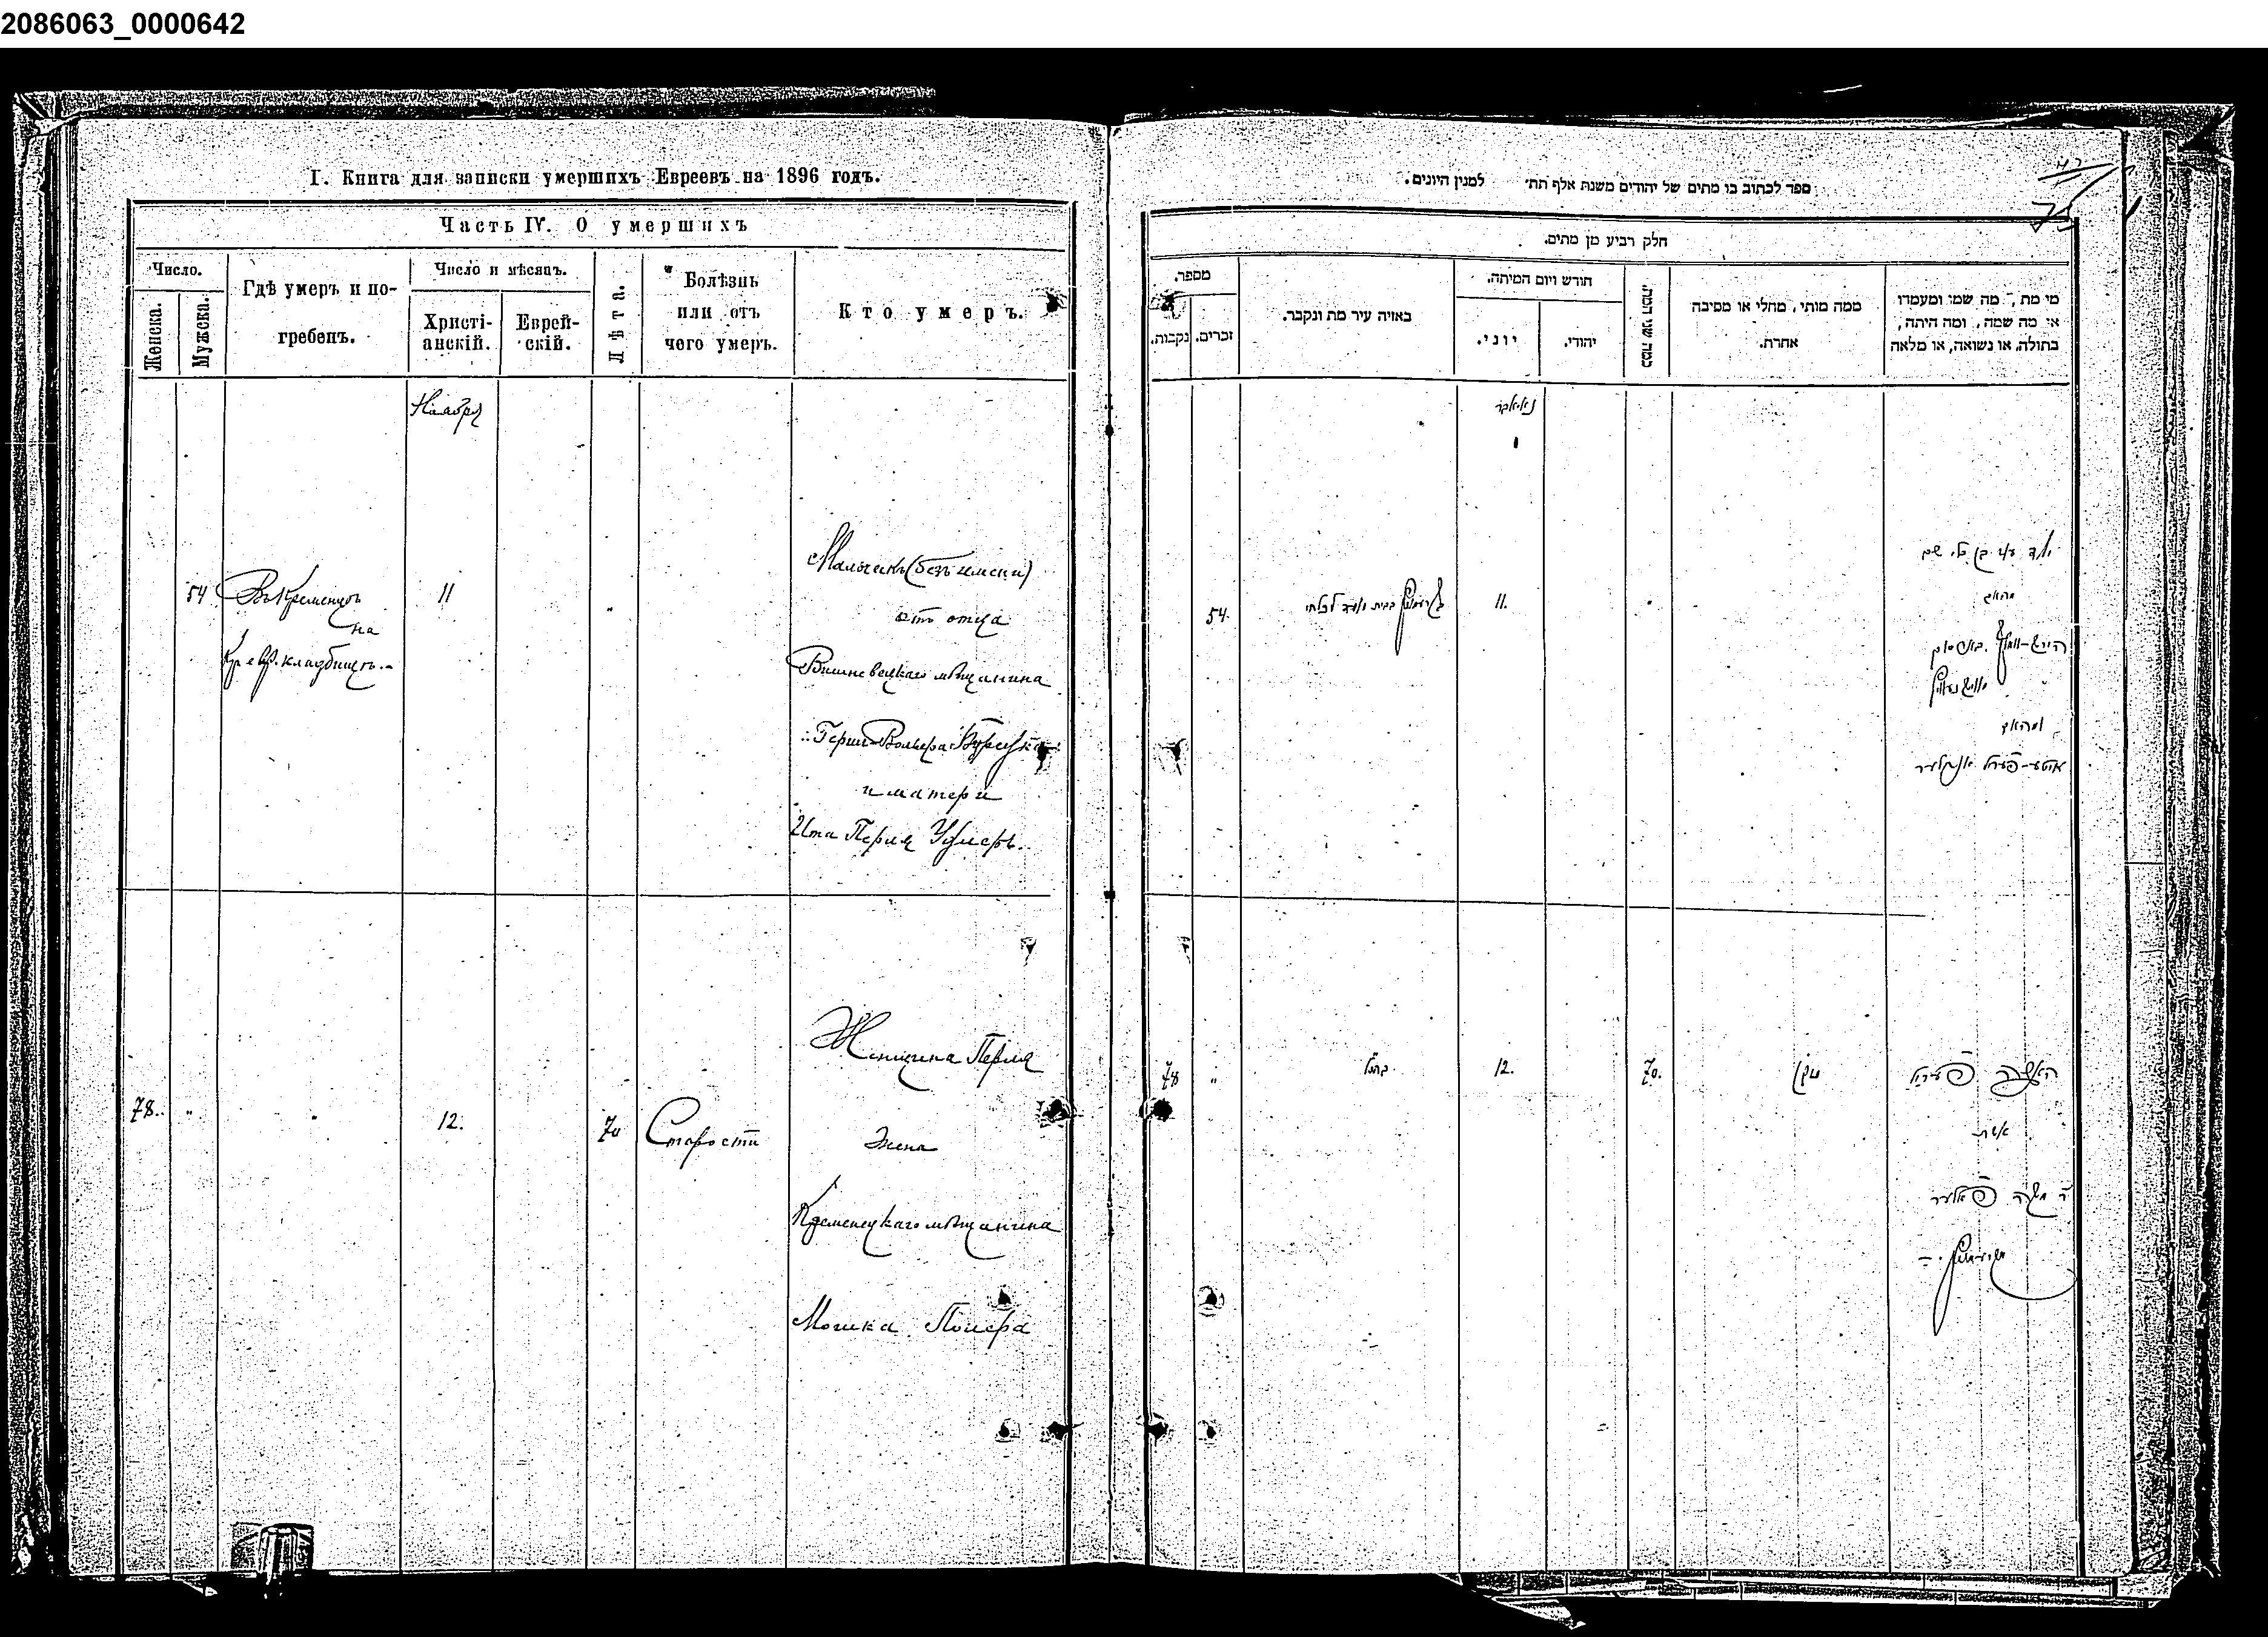 2086063_0000642
I. Книга для записки умершихъ Евреевъ на 1896 годъ.
Часть IV. О умершихъ
Число.
Женска.
Мужска.
Гдѣ умеръ и по-
гребенъ.
Число и мѣсяцъ.
Христі-
анскій.
Еврей-
скій.
Лѣта.
Болѣзнь
или отъ
чего умеръ.
Кто умеръ.
Ноября
54
Въ Кременцѣ
на
евр. кладбищѣ.
11
"
Мальчикъ (безъ имени)
отъ отца
Вишневецкаго мѣщанина
Герш Вольфа
и матери
Ита Перля
78.
"
"
12.
70
Старости
Женщина Перля
жена
Кременецкаго мѣщанина
Мошка
ספר לכתוב בו מתים של יהודים משנת אלף תת׳ למנין היונים.
75
חלק רביע מן מתים.
מספר.
נקבות.
זכרים.
באיזה עיר מת ונקבר.
חודש ויום המיתה.
יוני.
יהודי.
כמה שני המת.
ממה מותי, מחלי או מסיבה
אחרת.
מי מת, מה שמו ומעמדו
או מה שמה, ומה היתה,
בתולה, או נשואה, או מלאה
נאיאבר
54.
11.
ומהאם
78
"
12.
70.
זוקן
האשה פערל
אשת
ר׳ משה